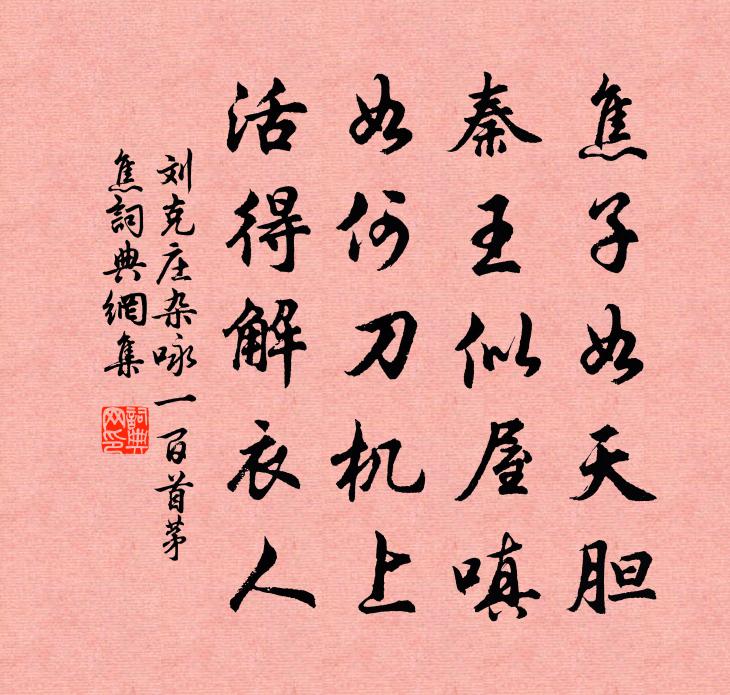 焦子如天胆
秦王似屋嗔
如何刀机上
活得解衣人
刘克庄杂咏一百首茅
焦詞典網集
詞典
网印